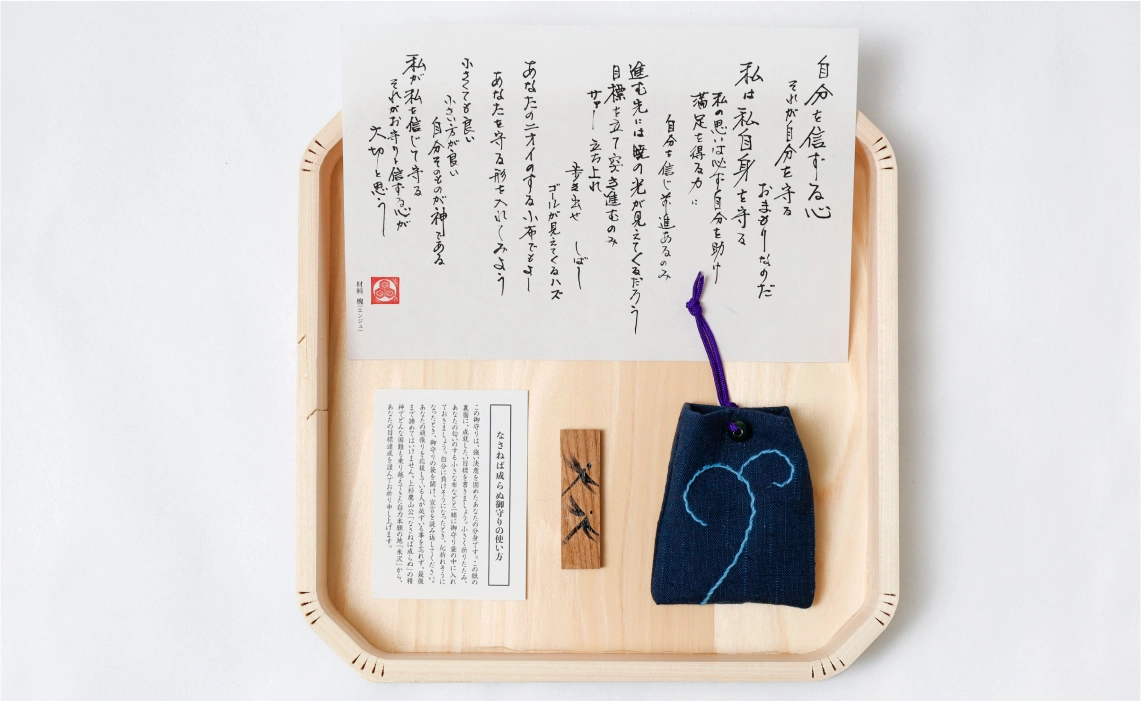 自分を信ずる心
それが自分を守る
おまもりなのだ
私は私自身を守る
私の思いは必ず自分を助け
満足を得る力に
自分を信じ前進あるのみ
進む先には暁の光が見えてくるだろう
目標を立て突き進むのみ
サァー 立ち上れ
歩き出せ しばし
ゴールが見えてくるハズ
あなたのニオイのする小布でもよし
あなたを守る形を入れてみよう
小さくても良い
小さい方が良い
自分そのものが神である
私が私を信じて守る
それがお守りを信ずる心が
大切と思う
材料 槐(エンジュ)
なさねば成らぬ御守りの使い方
この御守りは、強い決意を固めたあなたの分身です。この紙の
裏面に、成就したい目標を書きましょう。小さく折りたたみ、
あなたの匂いのする小さな布などと一緒に御守り袋の中に入れ
ておきましょう。自分に負けそうになったとき、心折れそうに
なったとき、御守りの袋を開け、宣言を読み返してください。
あなたの頑張りを応援している人が必ずいる事を忘れず、最後
まで諦めてはいけません。上杉鷹山公「なさねば成らぬ」の精
神でどんな困難も乗り越えてきた自力本願の地『米沢』から、
あなたの目標達成を謹んでお祈り申し上げます。